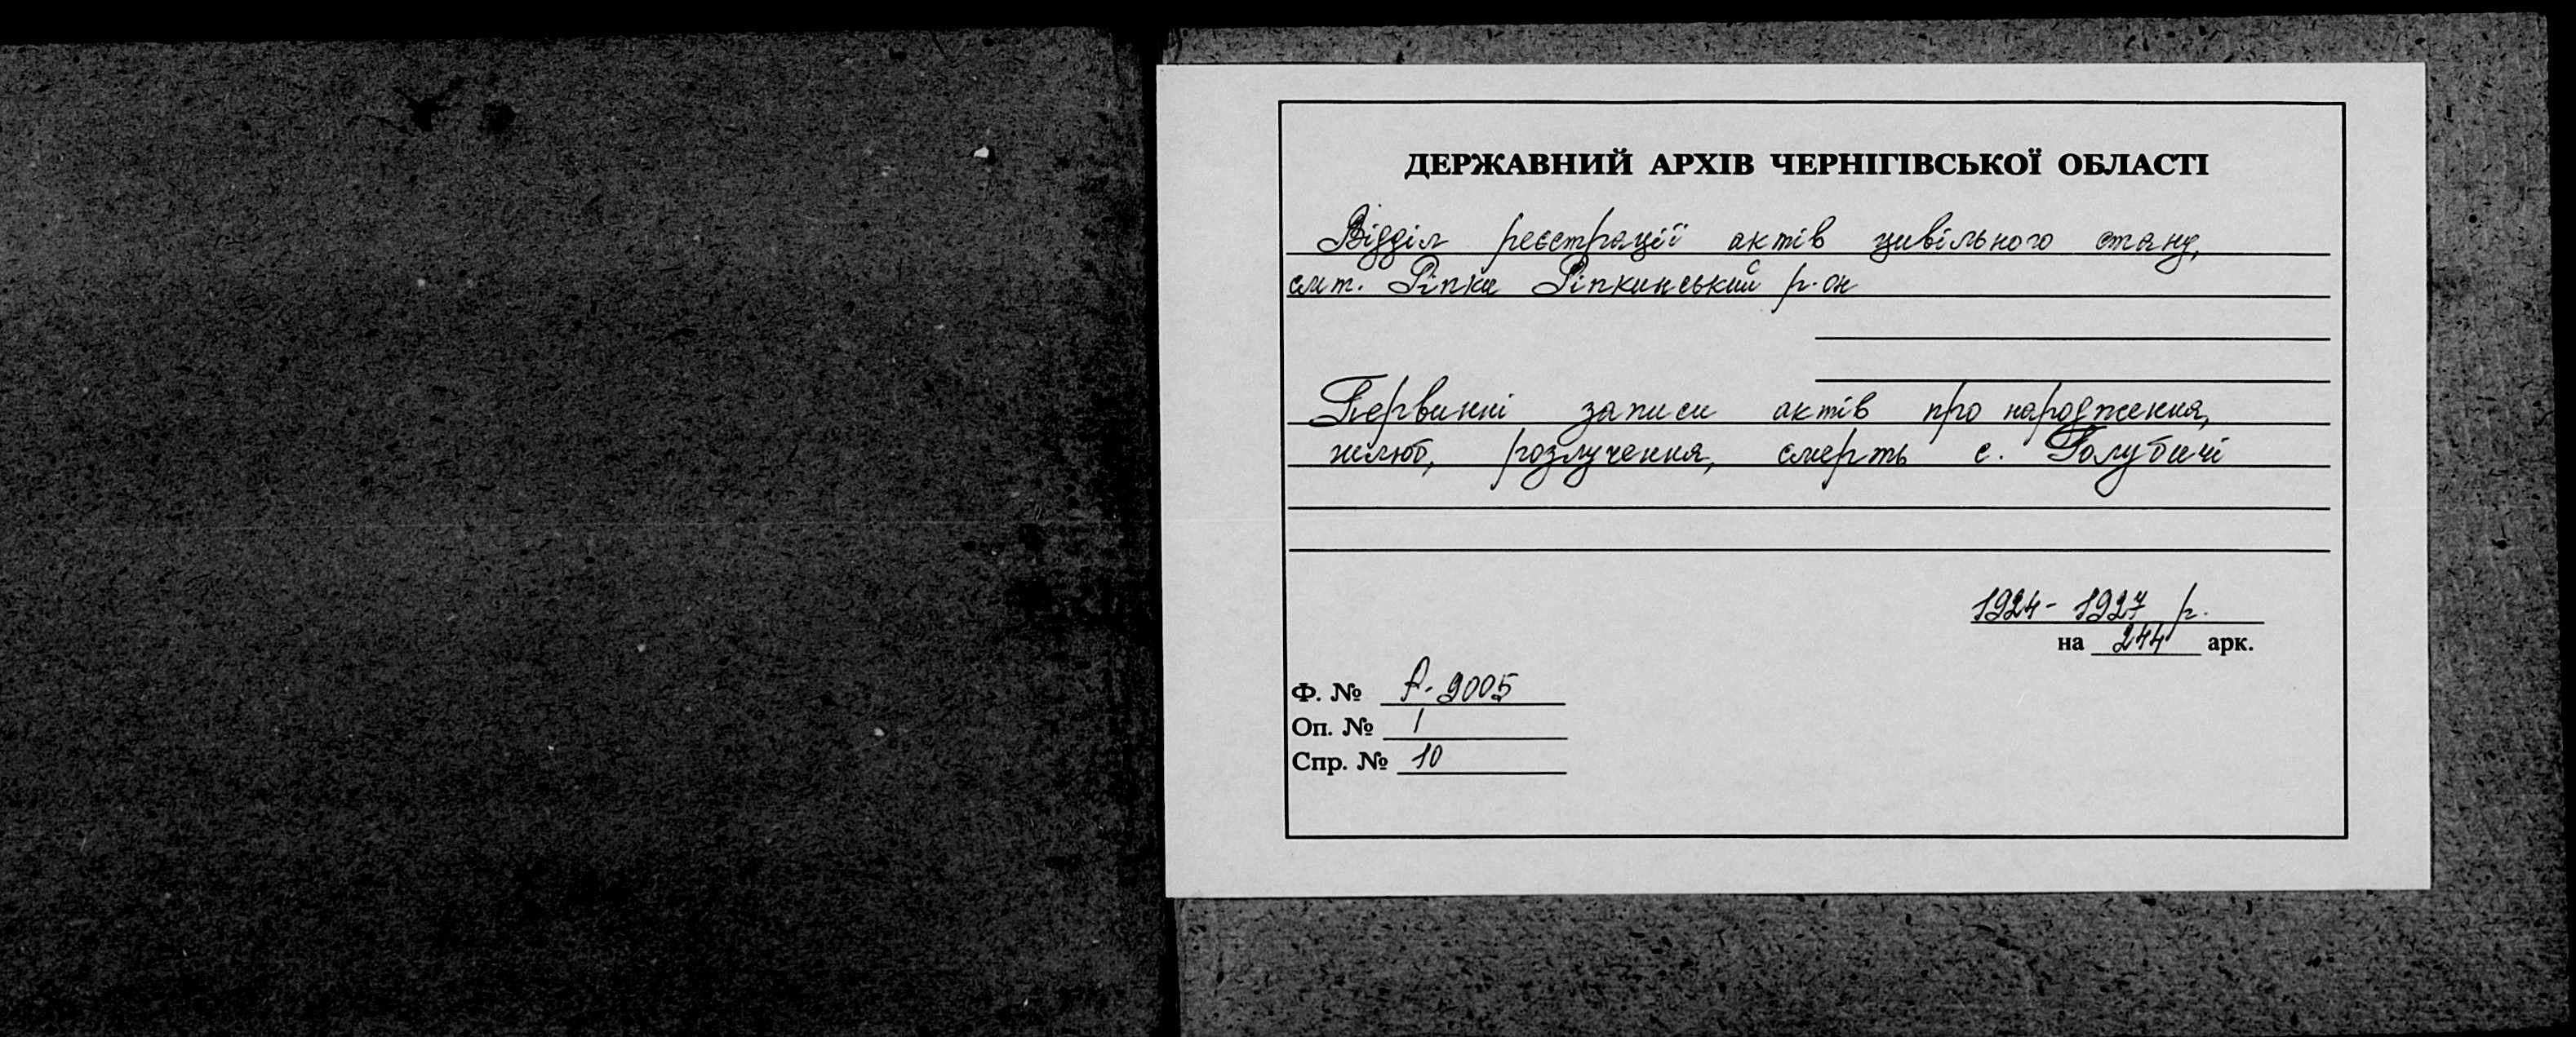 ДЕРЖАВНИЙ АРХІВ ЧЕРНІГІВСЬКОЇ ОБЛАСТІ
Відділ реєстрації актів цивільного стану,
смт. Ріпки Ріпкинський р-он
Первинні записи актів про народження,
шлюб, розлучення, смерть с. Голубичі
1924-1927 р.
на 244 арк.
Ф. № Р-9005
Оп. № 1
Спр. № 10